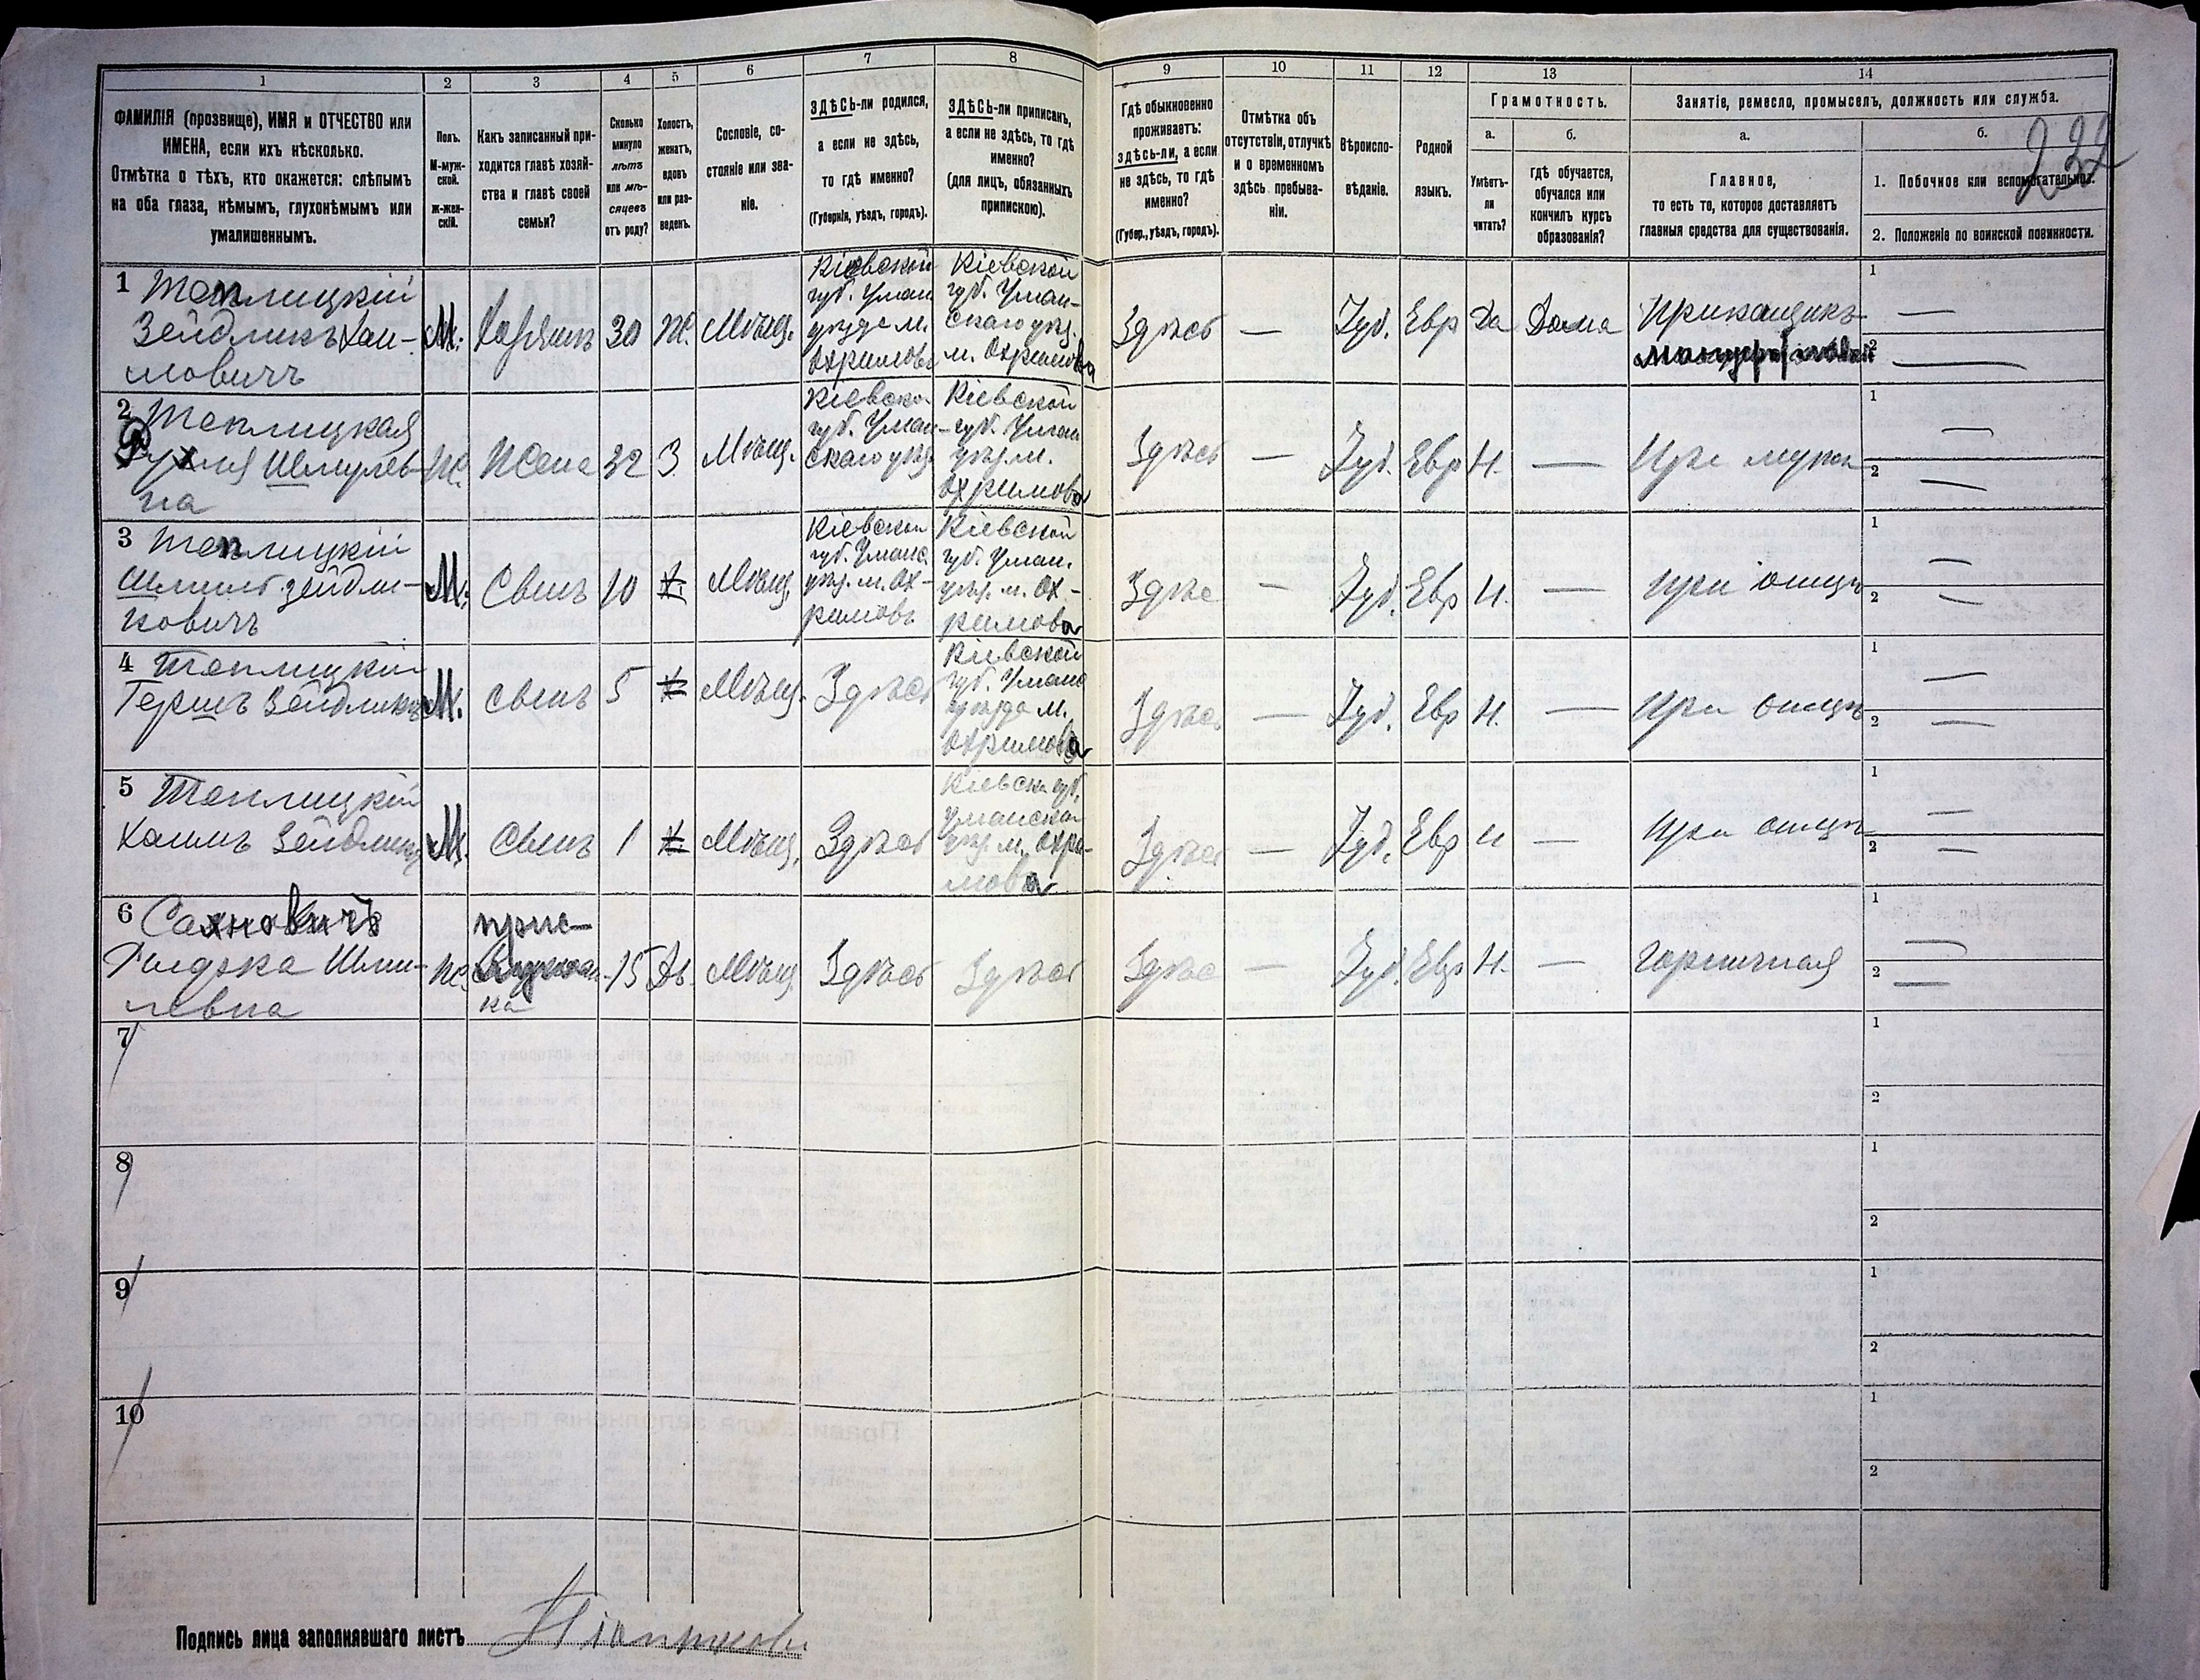 1
2
3
4
5
6
7
8
9
10
11
12
13
14
ФАМИЛІЯ (прозвище), ИМЯ и ОТЧЕСТВО или
ИМЕНА, если ихъ нѣсколько.
Отмѣтка о тѣхъ, кто окажется: слѣпымъ
на оба глаза, нѣмымъ, глухонѣмымъ или
умалишеннымъ.
Полъ.
М-муж-
ской.
ж-жен-
скій.
Какъ записанный при-
ходится главѣ хозяй-
ства и главѣ своей
семьи?
Сколько
минуло
лѣтъ
или мѣ-
сяцевъ
отъ роду?
Холостъ,
женатъ,
вдовъ
или раз-
веденъ.
Сословіе, со-
стояніе или зва-
ніе.
ЗДѢСЬ-ли родился,
а если не здѣсь,
то гдѣ именно?
(Губернія, уѣздъ, городъ).
ЗДѢСЬ-ли приписанъ,
а если не здѣсь, то гдѣ
именно?
(для лицъ, обязанныхъ
припискою).
Гдѣ обыкновенно
проживаетъ:
здѣсь-ли, а если
не здѣсь, то гдѣ
именно?
(Губер., уѣздъ, городъ).
Отмѣтка объ
отсутствіи, отлучкѣ
и о временномъ
здѣсь пребыва-
ніи.
Вѣроиспо-
вѣданіе.
Родной
языкъ.
Грамотность.
а.
б.
Умѣетъ-
ли
читать?
гдѣ обучается,
обучался или
кончилъ курсъ
образованія?
Занятіе, ремесло, промыселъ, должность или служба.
а.
б.
Главное,
то есть то, которое доставляетъ
главныя средства для существованія.
1. Побочное или вспомогательное.
2. Положеніе по воинской повинности.
1 Теплицкій
Зейдликъ Хаи-
мовичъ
М.
Хозяинъ
30
Ж.
Мѣщ.
Кіевской
губ. Уман
уѣзда м.
Охримовъ
Кіевской
губ. Уман-
скаго уѣзд.
м. Охримова
Здѣсь
—
Іуд.
Евр
Да
Дома
Прикащикъ
1 —
2 —
2 Теплицкая
Шмулев-
на
Ж.
Жена
32
З.
Мѣщ.
Кіевско
губ. Уман-
скаго уѣзд.
Кіевской
губ. Уман
уѣзд. м.
Охримова
Здѣсь
—
Іуд.
Евр
Н.
—
При мужѣ
1 —
2 —
3 Теплицкій
Шмиль Зейдли-
ковичъ
М.
Сынъ
10
Х.
Мѣщ.
Кіевской
губ. Уманс.
уѣзд. м. Ох-
римовъ
Кіевской
губ. Уман.
уѣзд. м. Ох-
римова
Здѣсь
—
Іуд.
Евр
Н.
—
при отцѣ
1 —
2 —
4 Теплицкій
Гершъ Зейдлик
М.
сынъ
5
Х
Мѣщ.
Здѣсь
Кіевской
губ. Уманс
уѣзда м.
Охримова
Здѣсь
—
Іуд.
Евр
Н.
—
При отцѣ
1 —
2 —
5 Теплицкій
Хаимъ Зейдлик
М.
Сынъ
1
Х
Мѣщ.
Здѣсь
Кіевск. губ.
Уманска
уѣзд. м. Охри-
мова
Здѣсь
—
Іуд.
Евр
н
—
При отцѣ
1 —
2 —
6 Сахновичъ
Шми-
левна
Ж.
прис-
15
Дѣ.
Мѣщ.
Здѣсь
Здѣсь
Здѣсь
—
Іуд.
Евр
Н.
—
горничная
1 —
2 —
7
1
2
8
1
2
9
1
2
10
1
2
Подпись лица заполнявшаго листъ